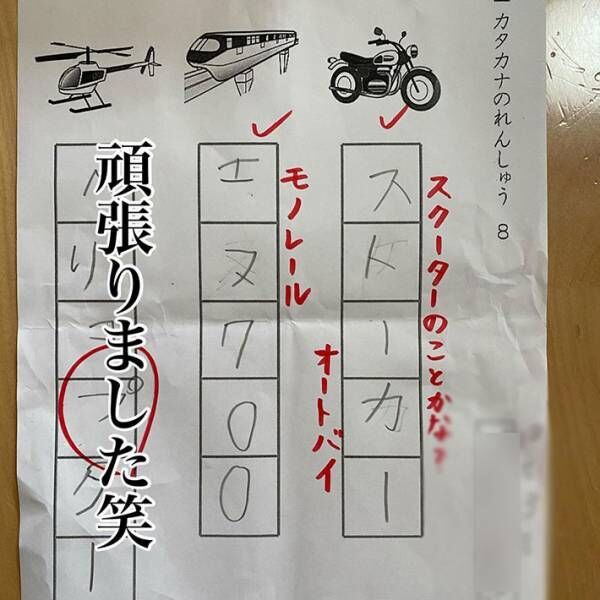 カタカナのれんしゅう 8
スクーターのことかな?
スケーカー
オートバイ
モノレール
エヌ700
頑張りました笑
ヘリコプター